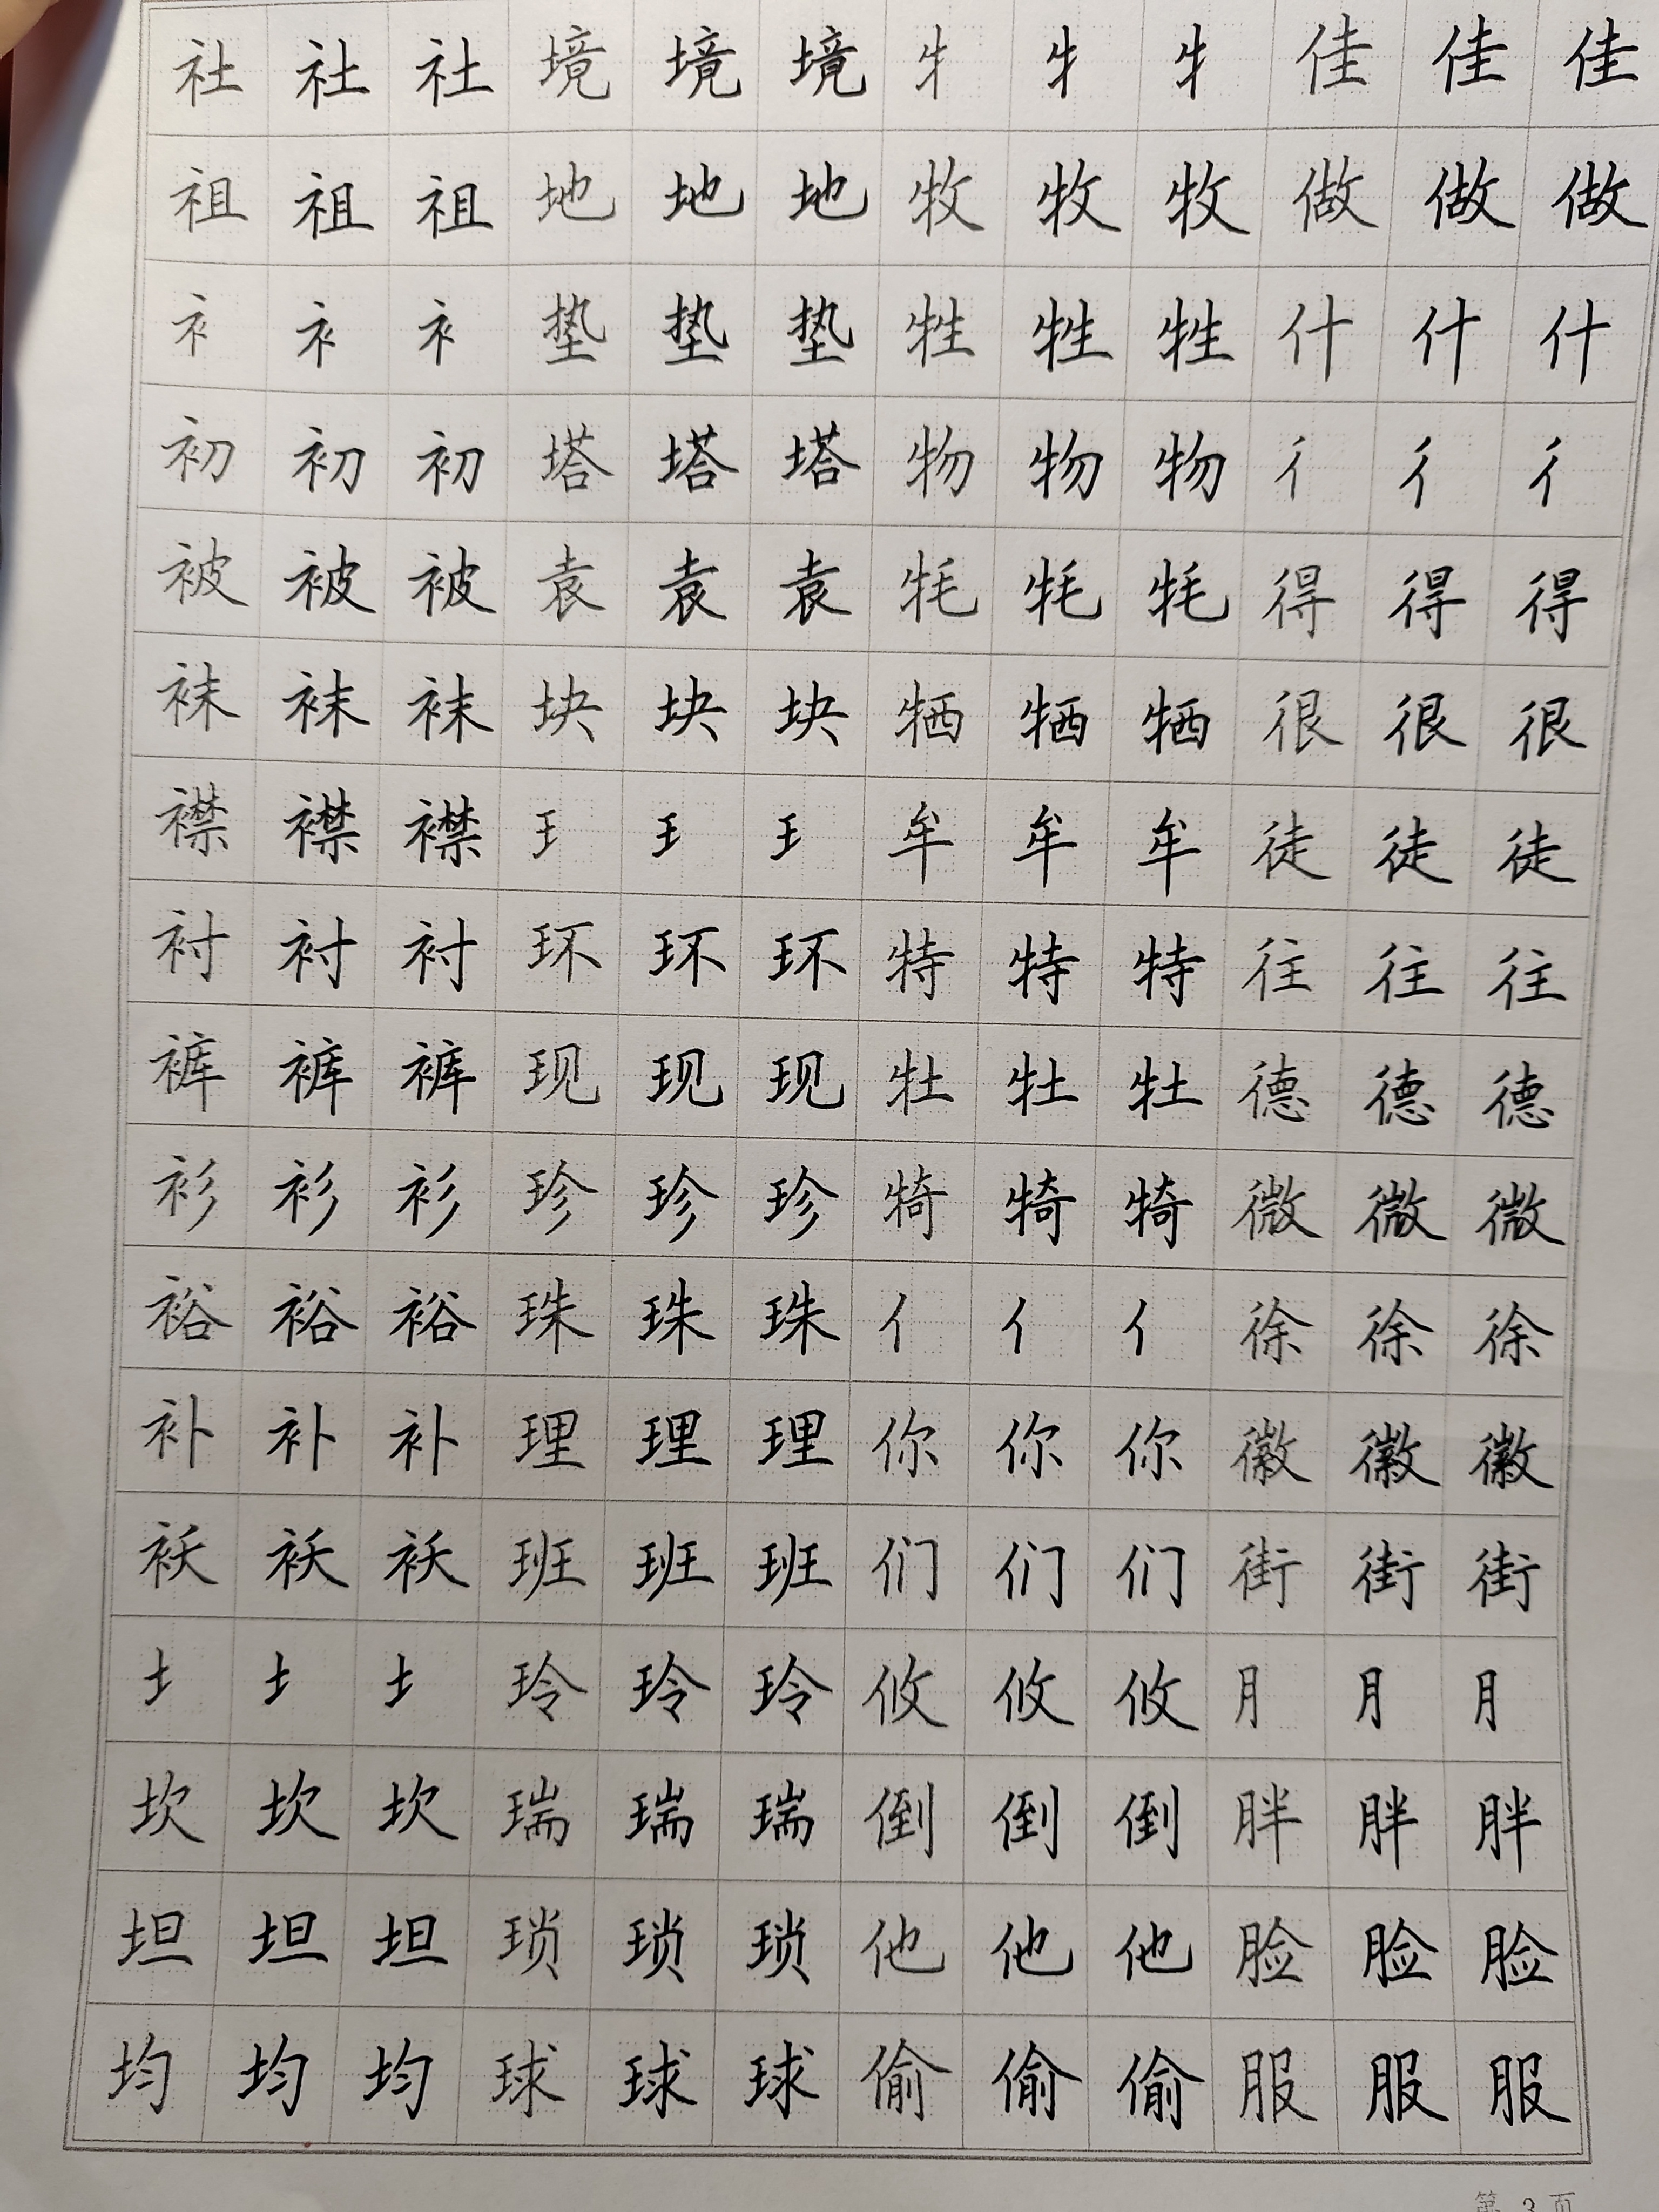 社 社 社 境 境 境 牜 牜 牜 佳 佳 佳
祖 祖 祖 地 地 地 牧 牧 牧 做 做 做
衤 衤 衤 垫 垫 垫 牲 牲 牲 什 什 什
初 初 初 塔 塔 塔 物 物 物 彳 彳 彳
被 被 被 袁 袁 袁 牦 牦 牦 得 得 得
袜 袜 袜 块 块 块 牺 牺 牺 很 很 很
襟 襟 襟 王 王 王 牟 牟 牟 徒 徒 徒
衬 衬 衬 环 环 环 特 特 特 往 往 往
裤 裤 裤 现 现 现 牡 牡 牡 德 德 德
衫 衫 衫 珍 珍 珍 犄 犄 犄 微 微 微
裕 裕 裕 珠 珠 珠 亻 亻 亻 徐 徐 徐
补 补 补 理 理 理 你 你 你 徽 徽 徽
袄 袄 袄 班 班 班 们 们 们 街 街 街
土 土 土 玲 玲 玲 攸 攸 攸 月 月 月
坎 坎 坎 瑞 瑞 瑞 倒 倒 倒 胖 胖 胖
坦 坦 坦 琐 琐 琐 他 他 他 脸 脸 脸
均 均 均 球 球 球 偷 偷 偷 服 服 服
第 3 页